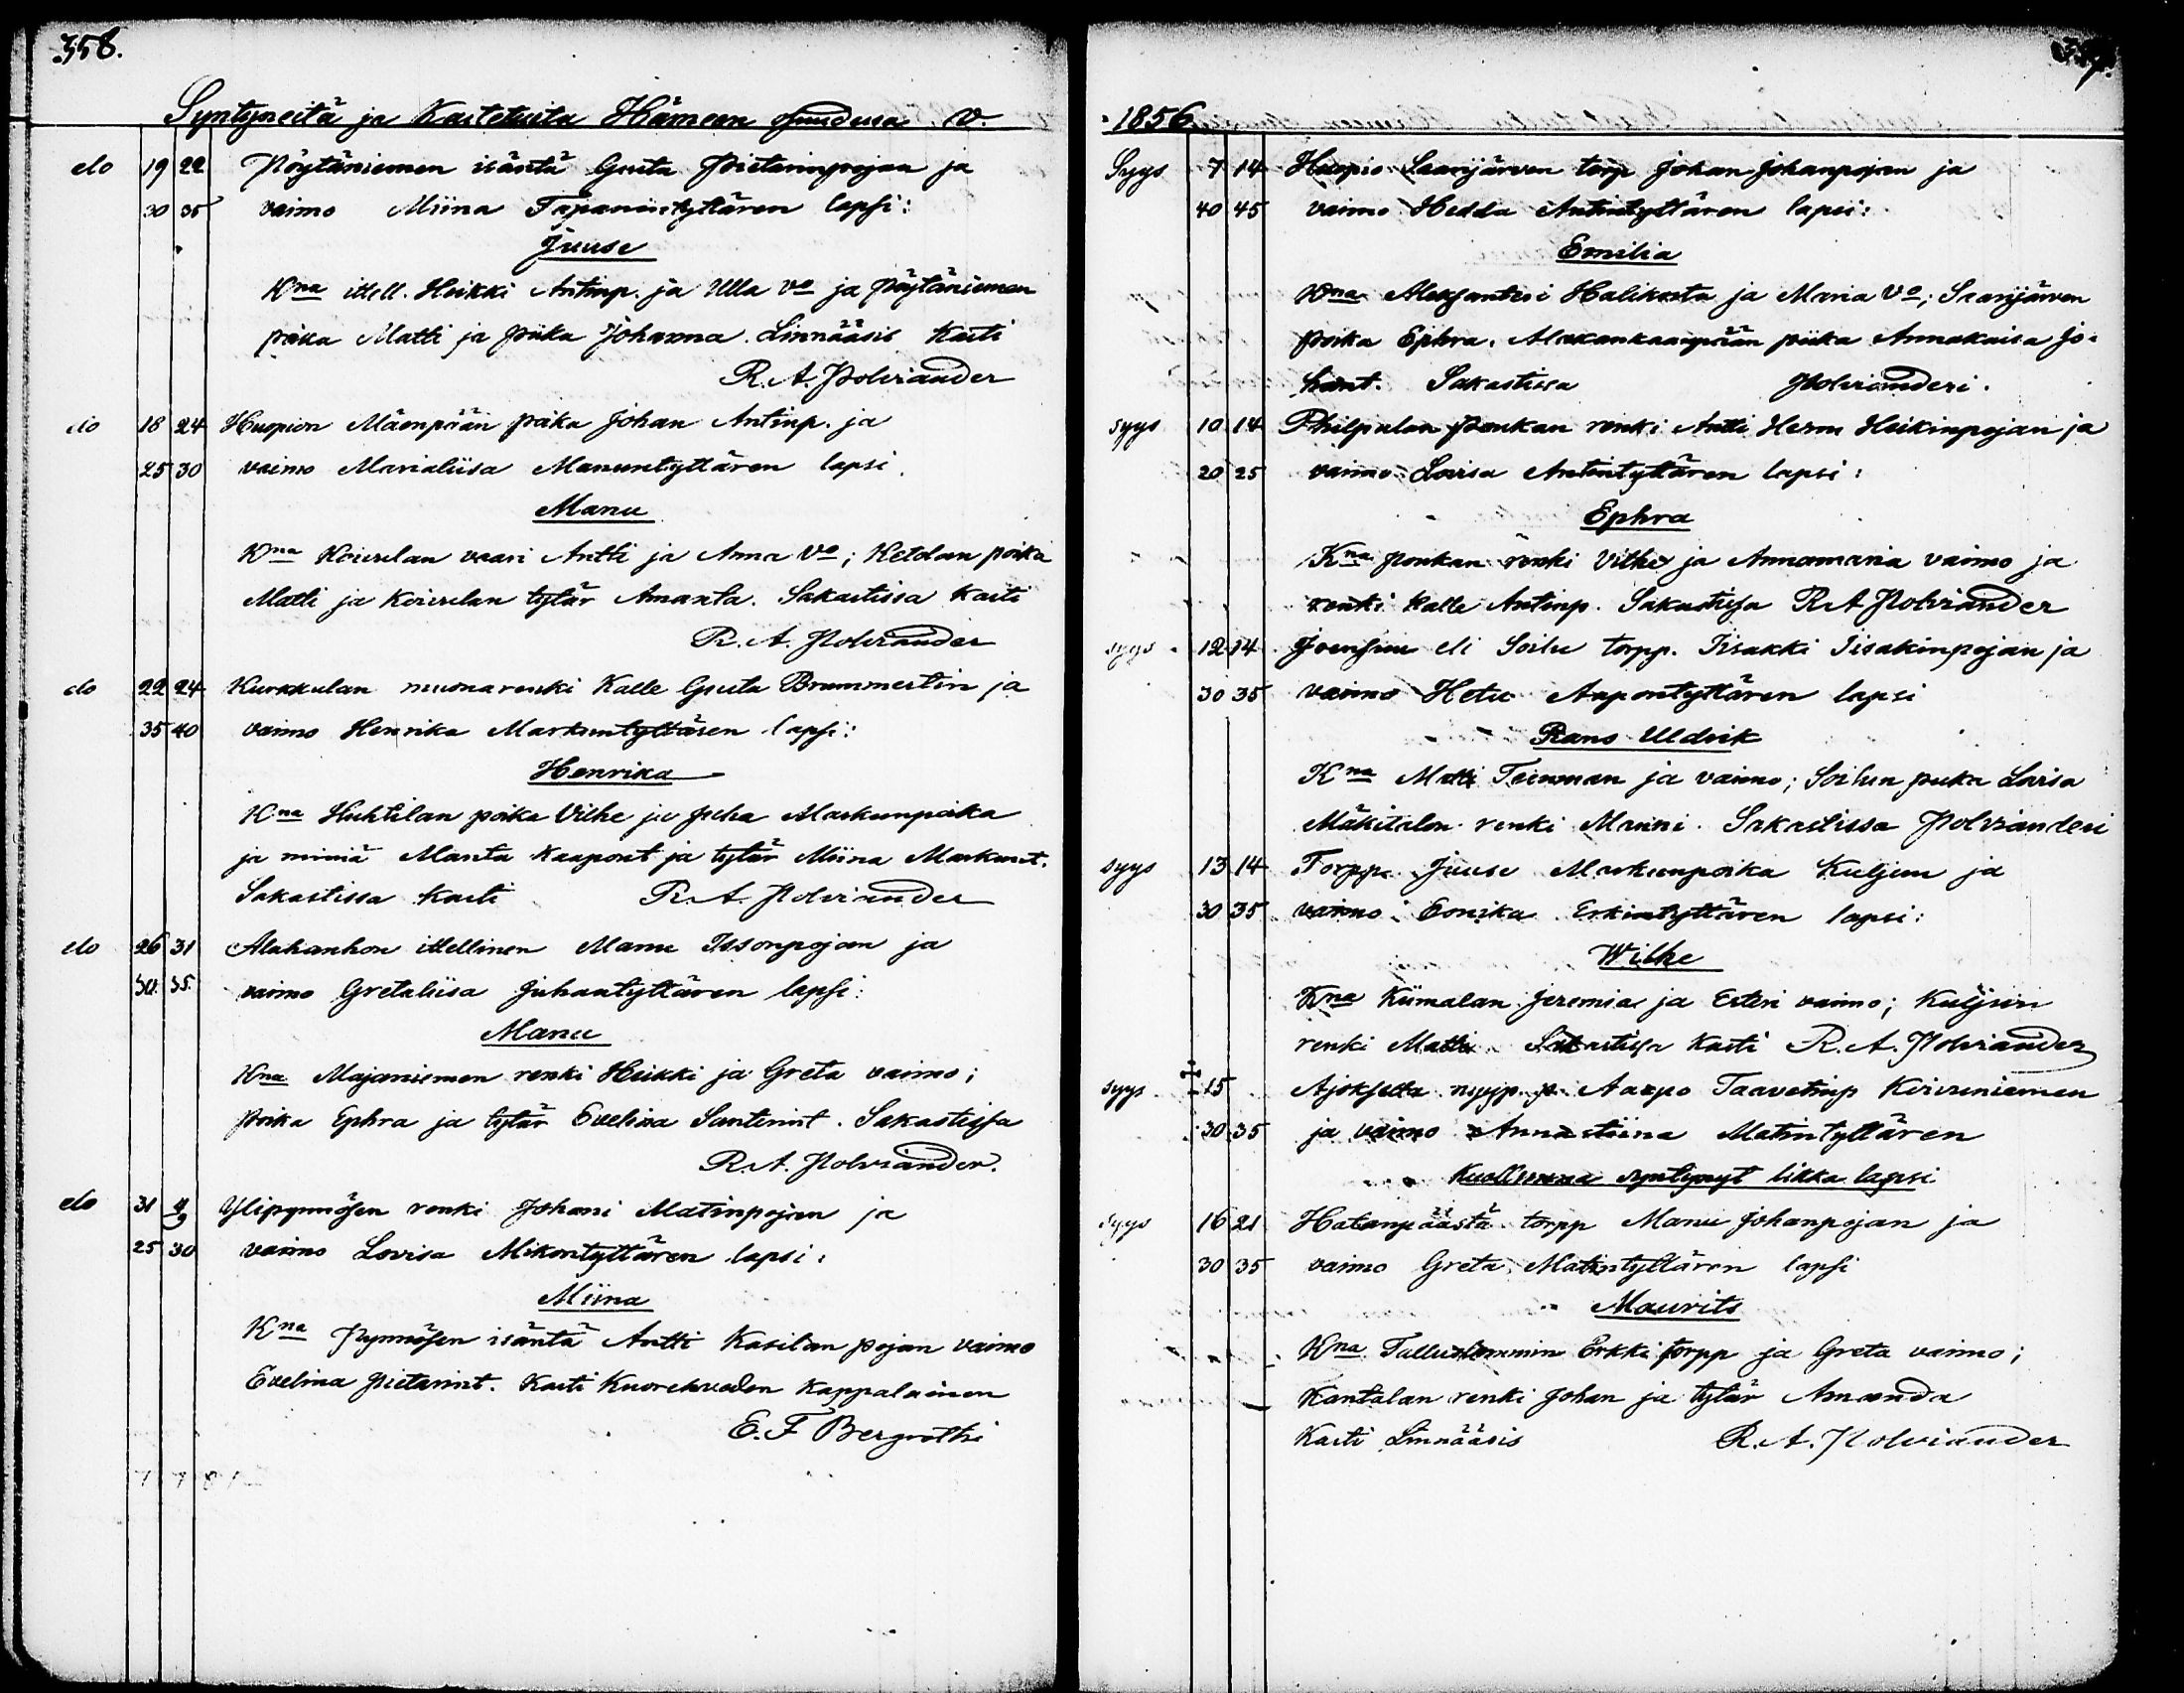 358.
Syntyneitä ja Kastetuita Hämeen puudessa V.
elo 19 22 Pöytäniemen isäntä Gusta Pietarinpojan ja
30 35 vaimo Miina Tapanintyttären lapsi:
Juuse
Kna itell. Heikki Antinp. ja Ulla vo ja Pöytäniemen
poika Matti ja piika Johanna. Linnääsis kasti
R. A. Polviander
elo 18 24 Huopion Mäenpään poika Johan Antinp. ja
25 30 vaimo Marialiisa Manuntyttären lapsi.
Manu
Kna Koivulan vaari Antti ja Anna Vo; Ketolan poika
Matti ja Koivulan tytär Amanta. Sakastissa kasti
R. A. Polviander
elo 22 24 Kurkkulan muonarenki Kalle Gusta Brummertin ja
35 40 vaimo Henrika Markuntyttären lapsi:
Henrika
Kna Huhtilan poika Vilhe ja Juha Markunpoika
ja miniä Manta Kaapont ja tytär Miina Markunt.
Sakastissa kasti R. A. Polviander
elo 26 31 Alahanhon itellinen Manu Issonpojan ja
30. 35. vaimo Gretaliisa Juhantyttären lapsi:
Manu
Kna Majaniemen renki Heikki ja Greta vaimo;
poika Ephra ja tytär Evelina Santerint. Sakastissa
R. A. Polviander.
elo 31 4/9 Ylipynnösen renki Johani Matinpojan ja
25 30 vaimo Lovisa Mikontyttären lapsi:
Miina
Kna Pynnösen isäntä Antti Kasilan pojan vaimo
Evelina Pietarint. Kasti Kuorehveden Kappalainen
E. F Bergrothi
1856
Syys 7 14 Huopio Saarijärven torp Johan Johanpojan ja
40 45 vaimo Hedda Antintyttären lapsi:
Emilia
Kna Aleksanteri Halikosta ja Maria Vo; Saarijärven
poika Ephra. Alakankaanpään piika Annakaisa Jo-
hant. Sakastissa Polvianderi.
syys 10 14 Philpulan Poukan renki Antti Herm Heikinpojan ja
20 25 vaimo Lovisa Antintyttären lapsi:
Ephra
Kna Poukan renki Vilhe ja Annamaria vaimo ja
renki Kalle Antinp. Sakastissa R A Polviander
syys 12 14 Joensuu eli Soilu torpp. Iisakki Iisakinpojan ja
30 35 vaimo Hetu Aapontyttären lapsi
Rans Uldrik
Kna Matti Teinman ja vaimo; Soilun piika Lovisa
Mäkitalon renki Manni. Sakastissa Polvianderi
syys 13 14 Torpp. Juuse Markunpoika Kuljun ja
30 35 vaimo Eerika Erkintyttären lapsi:
Wilhe
Kna Kiimalan Jeremias ja Esteri vaimo; Kuljun
renki Matti Sakastissa kasti R. A. Polviander
syys 15 Ajoksella Aapo Taavetinp Koivuniemen
30 35 ja vaimo Annastiina Matintyttären
Kuolleena syntynyt likka lapsi
syys 16 21 Hatanpäästä torpp Manu Johanpojan ja
30 35 vaimo Greta Matintyttären lapsi
Maurits
Kna Erkki torpp ja Greta vaimo;
Kantalan renki Johan ja tytär Amanda
Kasti Linnääsis R. A. Polviander